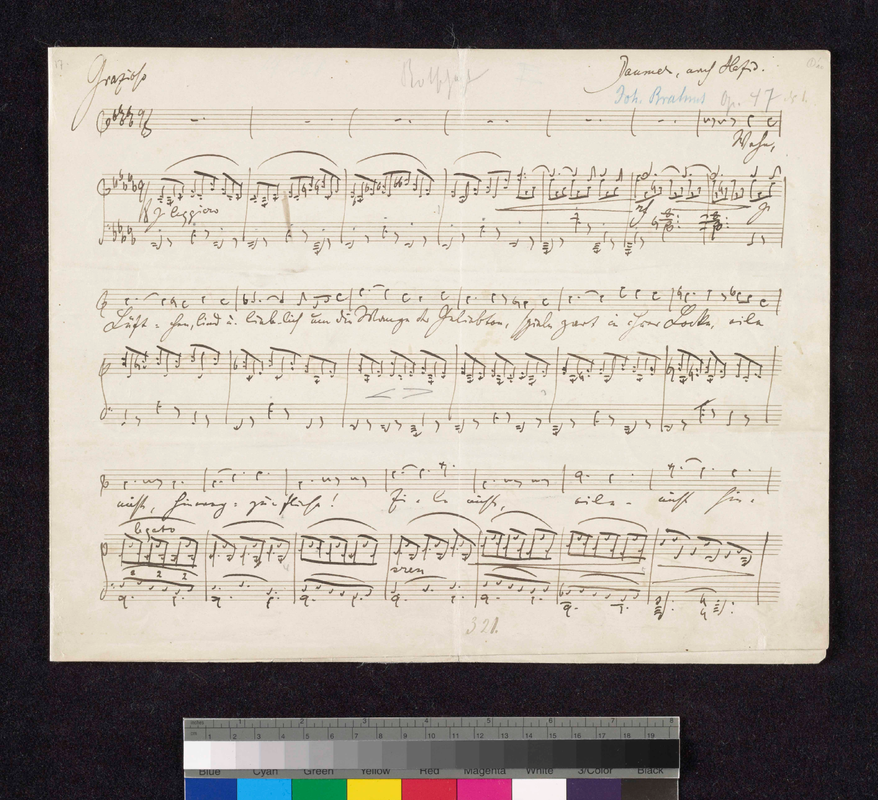 Grazioso
Botschaft
Daumer, nach Hafis.
Joh. Brahms Op. 47 No 1.
Wehe,
p leggiero
Lüft-chen, lind u. lieblich um die Wange der Geliebten, spiele zart in ihrer Locke, eile
nicht, hinweg-zu-fliehn! Ei-le nicht, eile- nicht hin-
legato
2 2
cresc
321.
1 2 3 4 5 6 7 8
cm 1 2 3 4 5 6 7 8 9 10 11 12 13 14 15 16 17 18 19
Blue Cyan Green Yellow Red Magenta White 3/Color Black